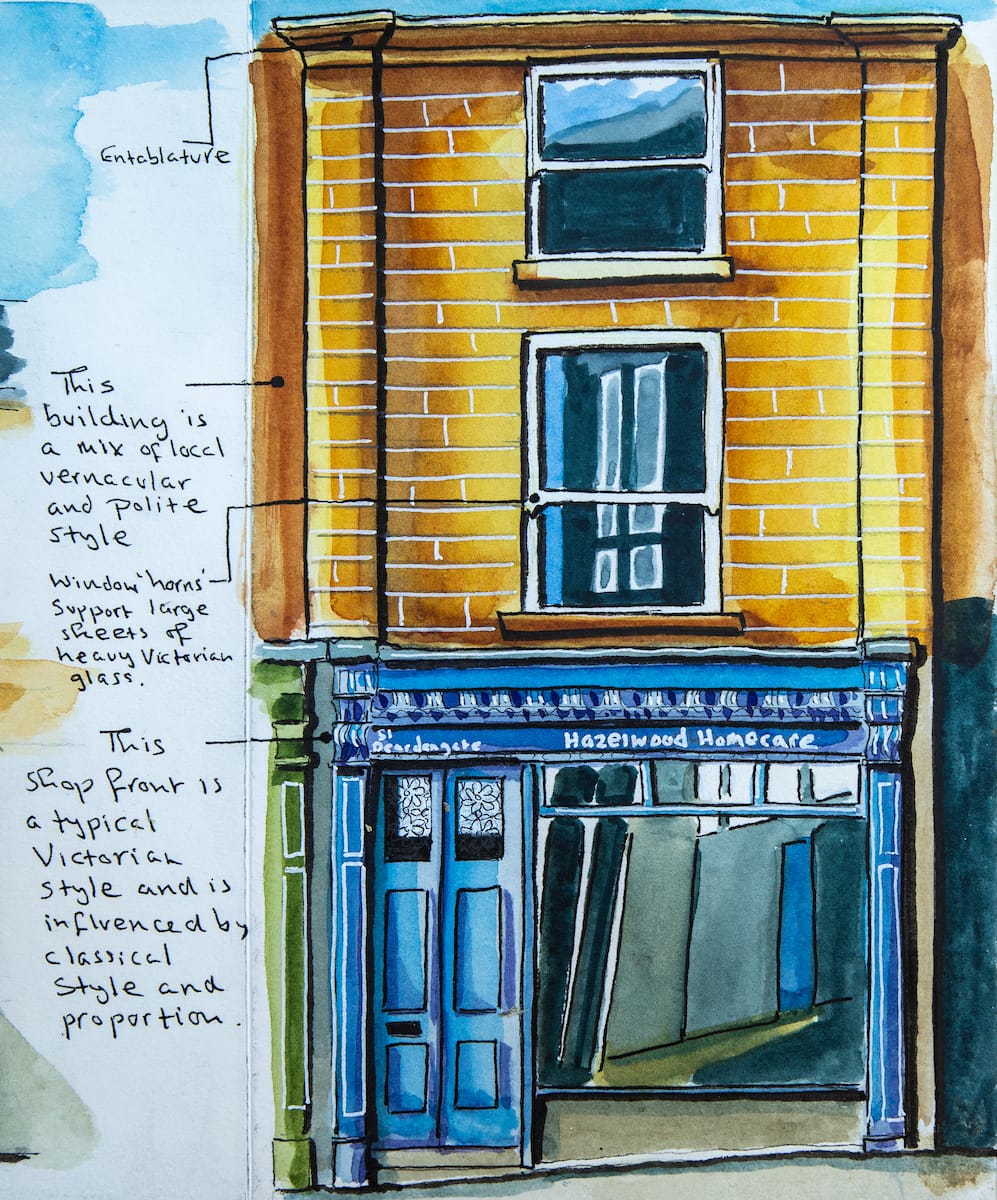 Entablature
This
building is
a mix of local
vernacular
and polite
style
Window 'horns'
Support large
sheets of
heavy Victorian
glass.
This
Shop front is
a typical
Victorian
style and is
influenced by
classical
style and
proportion.
51
Deardengate
Hazelwood Homecare